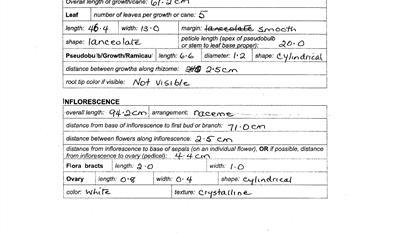 Overall length of growth/cane: 61.2 cm
Leaf number of leaves per growth or cane: 5
length: 46.4 width: 13.0 margin: lanceolate smooth
shape: lanceolate petiole length (apex of pseudobulb or stem to leaf base proper): 20.0
Pseudobulb/Growth/Ramicaul length: 6.6 diameter: 1.2 shape: Cylindrical
distance between growths along rhizome: 2.5cm
root tip color if visible: Not visible
INFLORESCENCE
overall length: 94.2cm arrangement: raceme
distance from base of inflorescence to first bud or branch: 71.0cm
distance between flowers along inflorescence: 2.5 cm
distance from inflorescence to base of sepals (on an individual flower), OR if possible, distance
from inflorescence to ovary (pedicel): 4.4cm
Floral bracts length: 2.0 width: 1.0
Ovary length: 0.8 width: 0.4 shape: cylindrical
color: White texture: Crystalline